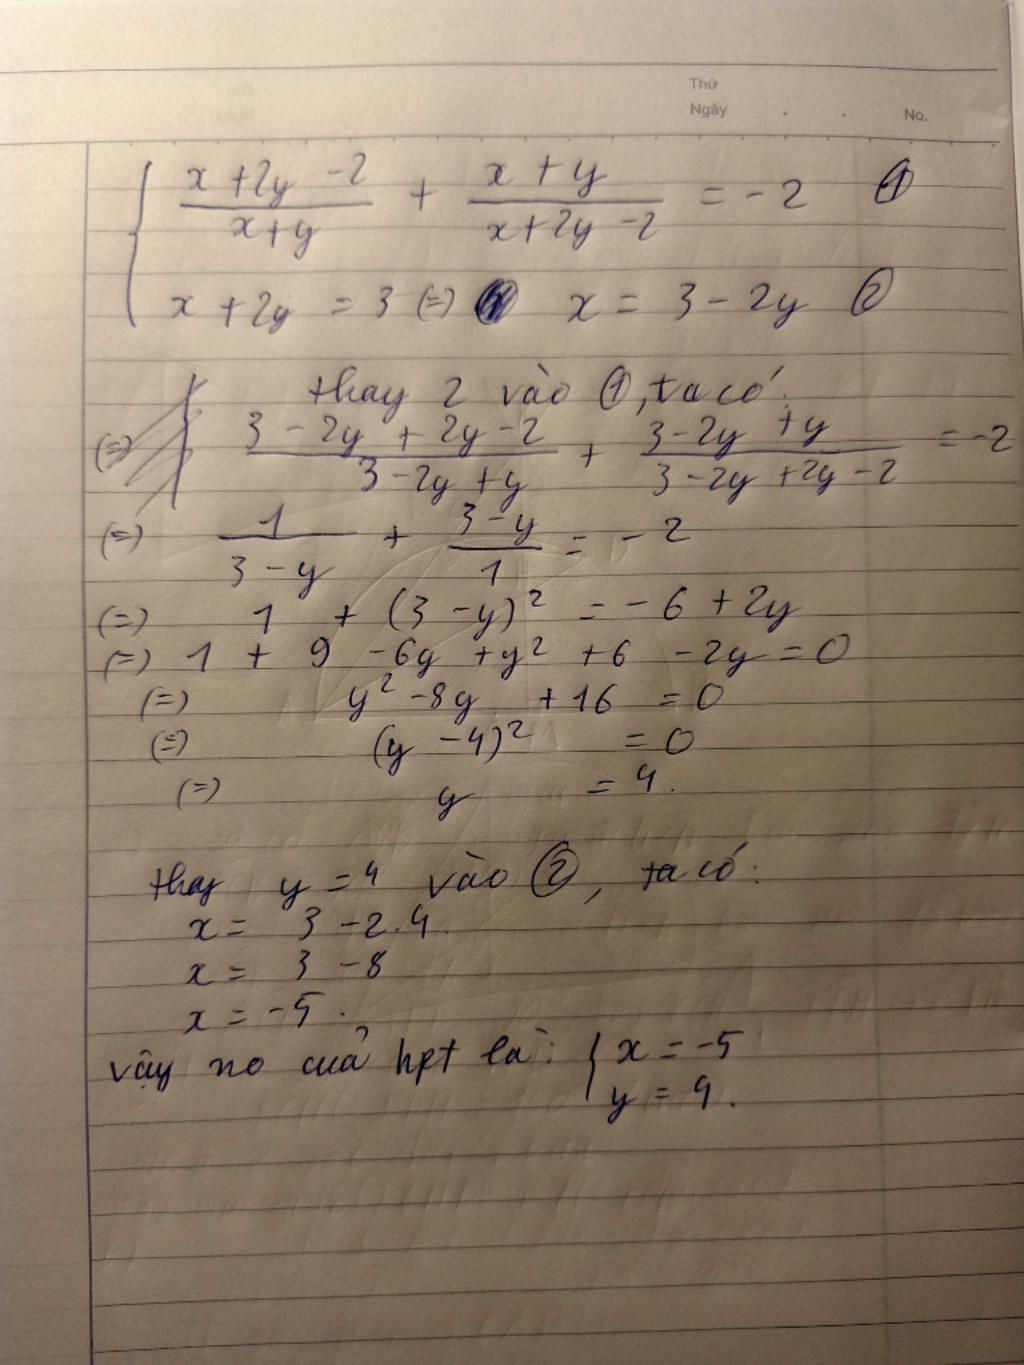 Thứ
Ngày . . No.
{ (x + 2y - 2)/(x + y) + (x + y)/(x + 2y - 2) = -2 ①
x + 2y = 3 (=) x = 3 - 2y ②
thay 2 vào ①, ta có:
(=) (3 - 2y + 2y - 2)/(3 - 2y + y) + (3 - 2y + y)/(3 - 2y + 2y - 2) = -2
(=) 1/(3 - y) + (3 - y)/1 = -2
(=) 1 + (3 - y)² = -6 + 2y
(=) 1 + 9 - 6y + y² + 6 - 2y = 0
(=) y² - 8y + 16 = 0
(=) (y - 4)² = 0
(=) y = 4.
thay y = 4 vào ②, ta có:
x = 3 - 2.4.
x = 3 - 8
x = -5.
vậy no của hpt là: { x = -5
y = 4.